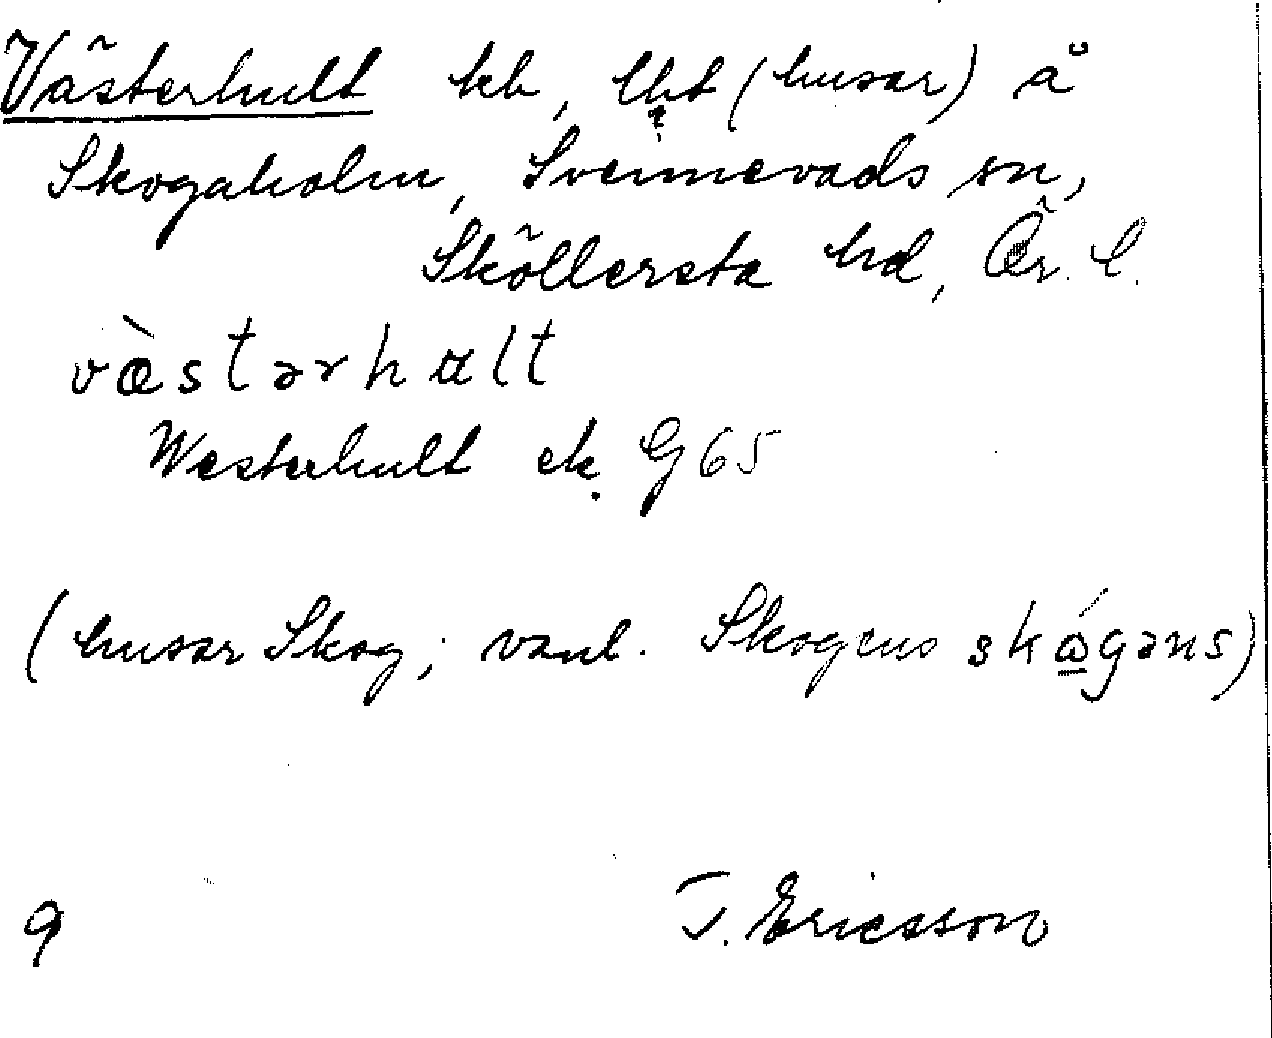 Västerhult kb, lht (husar) å
Skogaholm, Svennevads sn,
Sköllersta hd, Ör. l.
væ̀stərhult
Westerhult ek. G65
(husar Skog; vanl. Skogens skógəns)
9 T. Ericsson